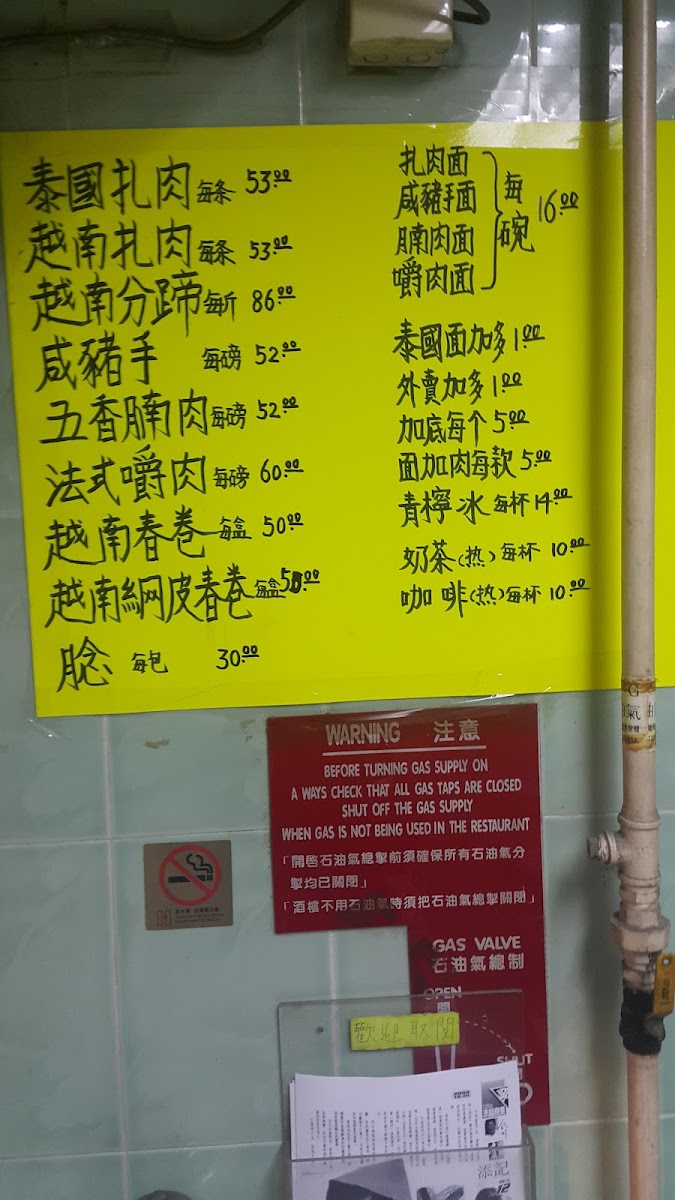 泰國扎肉 每条 53.00
越南扎肉 每条 53.00
越南分蹄 每斤 86.00
咸豬手 每磅 52.00
五香腩肉 每磅 52.00
法式嚼肉 每磅 60.00
越南春卷 每盒 50.00
越南網皮春卷 每盒 50.00
腍 每包 30.00
扎肉面
咸豬手面
腩肉面
嚼肉面
每碗 16.00
泰國面加多 1.00
外賣加多 1.00
加底每个 5.00
面加肉每款 5.00
青檸冰 每杯 14.00
奶茶(热)每杯 10.00
咖啡(热)每杯 10.00
WARNING 注意
BEFORE TURNING GAS SUPPLY ON
A WAYS CHECK THAT ALL GAS TAPS ARE CLOSED
SHUT OFF THE GAS SUPPLY
WHEN GAS IS NOT BEING USED IN THE RESTAURANT
「開啓石油氣總掣前須確保所有石油氣分
掣均已關閉」
「酒樓不用石油氣時須把石油氣總掣關閉」
GAS VALVE
石油氣總制
OPEN
開
SHUT
歡迎取閱
添記